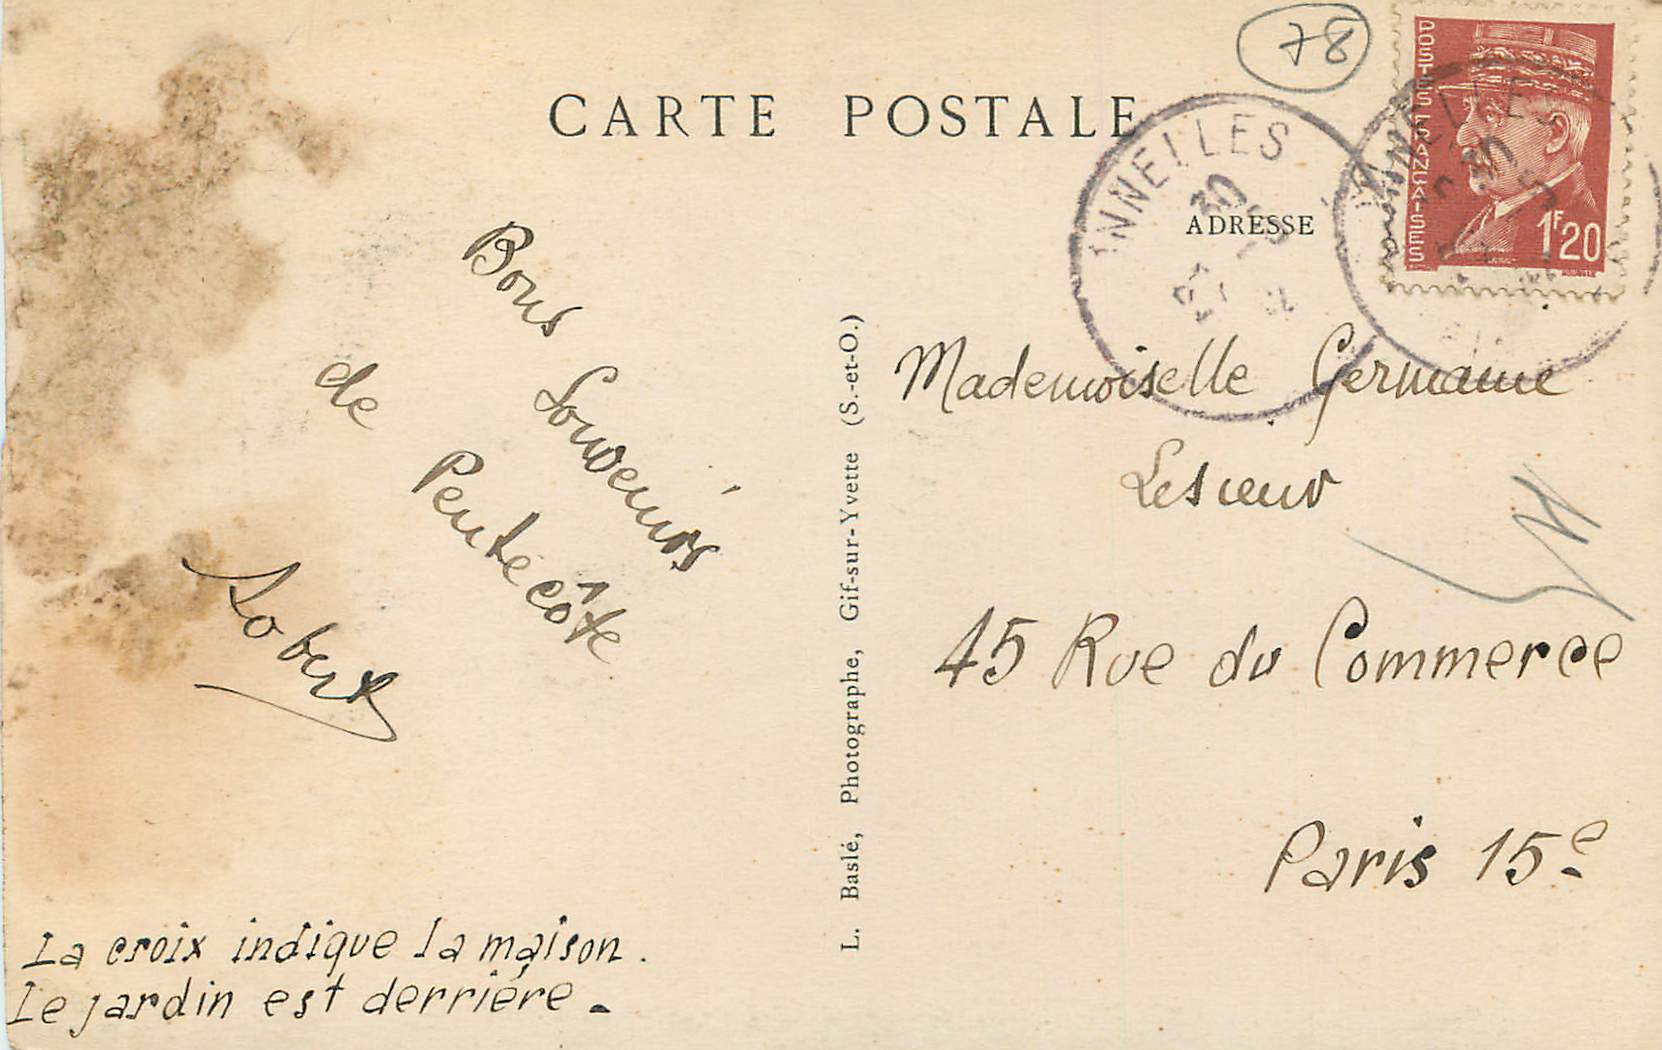 CARTE POSTALE
ADRESSE
78
POSTES FRANÇAISES
1F20
NNELLES
30
Bons
Souvenirs
de
Pentecôte
Robert
La croix indique la maison.
Le jardin est derrière -
L. Baslé, Photographe, Gif-sur-Yvette (S.-et-O.)
Mademoiselle Germaine
Lesueur
45 Rue du Commerce
Paris 15e